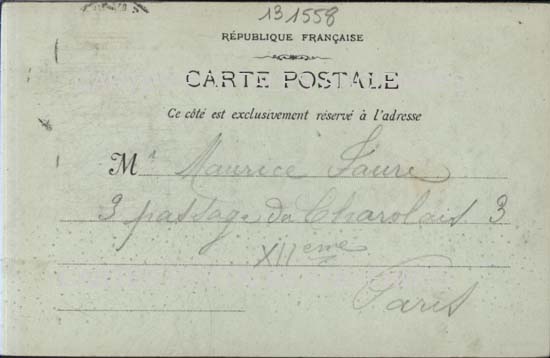 131558
RÉPUBLIQUE FRANÇAISE
CARTE POSTALE
Ce côté est exclusivement réservé à l'adresse
Mr Maurice Faure
3 passage du Charolais 3
XIIeme
Paris